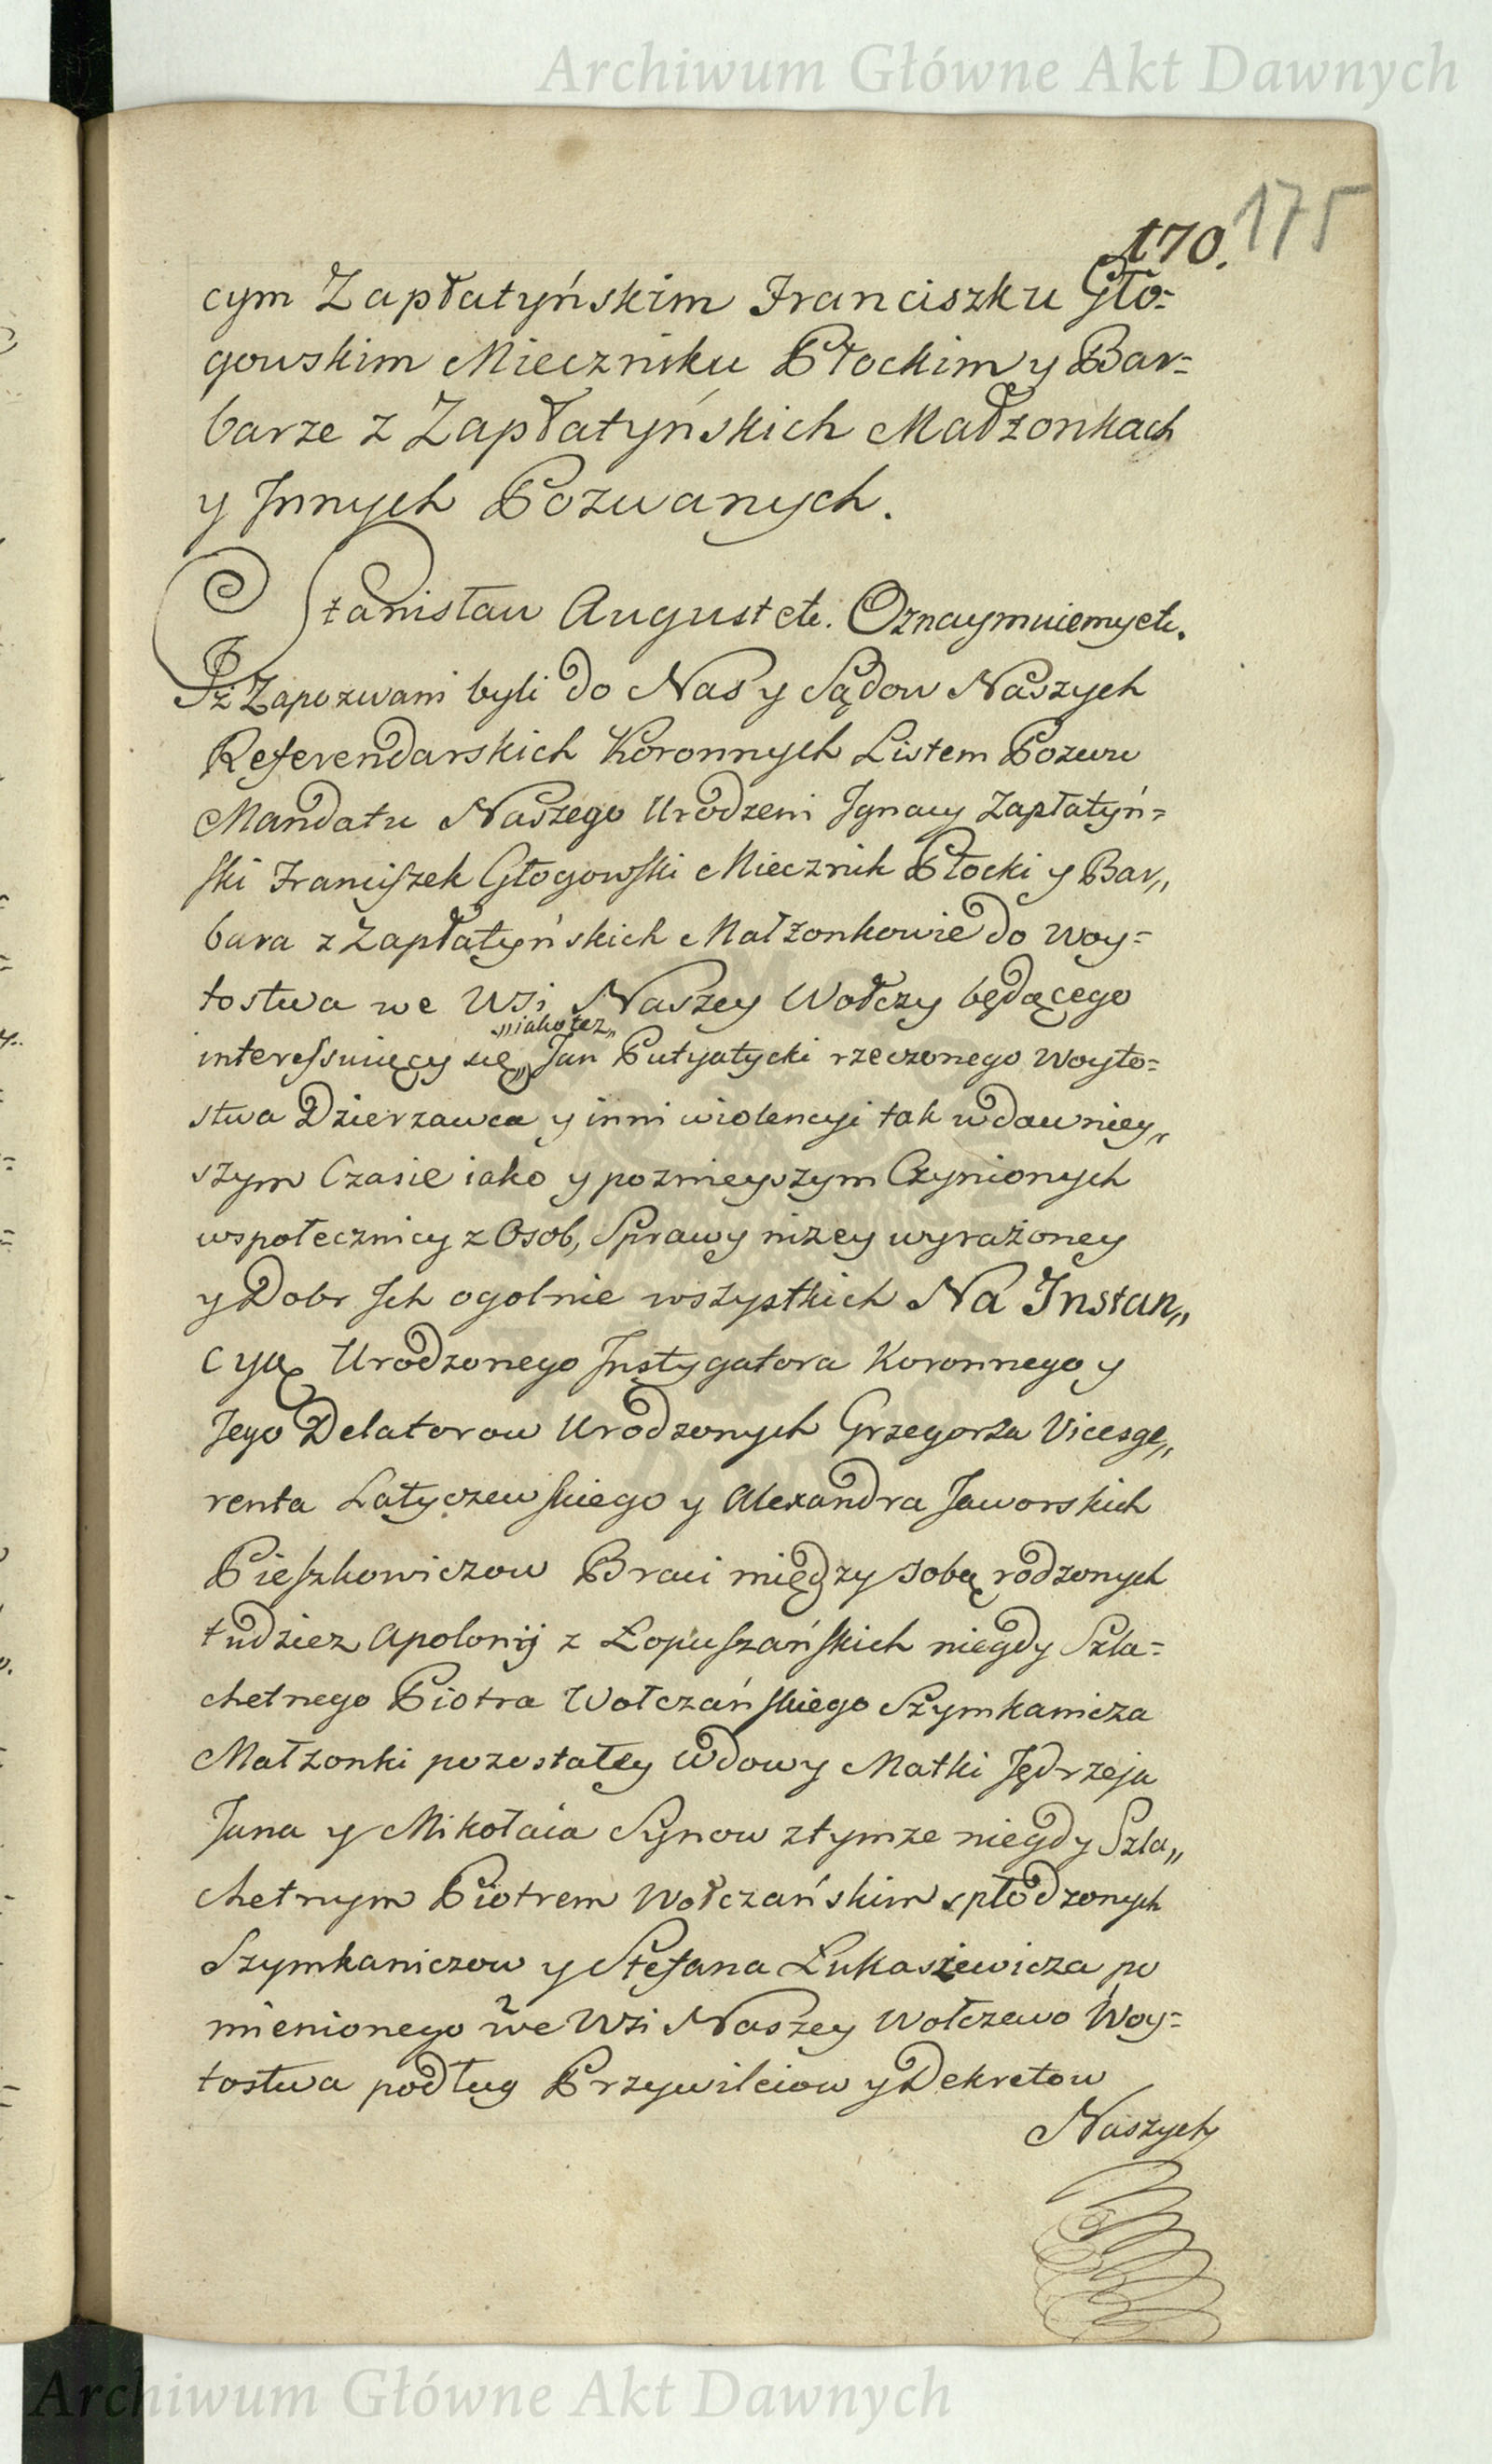 Archiwum Główne Akt Dawnych
175
170.
cym Zapłatyńskim Franciszku Gło=
gowskim Mieczniku Płockim y Bar=
barze z Zapłatyńskich Małzonkach
y Jnnych Pozwanych.
Stanisław August etc. Oznaymuiemy etc.
Jż Zapozwani byli do Nas y Sądow Naszych
Referendarskich Koronnych Listem Pozwu
Mandatu Naszego Urodzeni Jgnacy Zapłatyń=
ski Franciszek Głogowski Miecznik Płocki y Bar„
bara z Zapłatyńskich Małzonkowie do Woy=
tostwa we Wsi Naszey Wołczy będącego
„iako tez„
interessuięcy się„ Jan Putyatycki rzeczonego Woyto=
stwa Dzierzawca y inni wiolencyi tak w dawniey„
szym Czasie iako y poznieyszym Czynionych
wspołecznicy z Osob, Sprawy nizey wyrażoney
y Dobr Jch ogolnie wszystkich Na Jnstan„
cyą Urodzonego Jnstygatora Koronnego y
Jego Delatorow Urodzonych Grzegorza Vicesge„
renta Latyczewskiego y Alexandra Jaworskich
Pieszkowiczow Braci między sobą rodzonych
tudziez Apolonij z Łopuszańskich niegdy Szla=
chetnego Piotra Wołczańskiego Szymkanicza
Małzonki pozostałey Wdowy Matki Jędrzeja
Jana y Mikołaia Synow z tymze niegdy Szla„
chetnym Piotrem Wołczańskim spłodzonych
Szymkaniczow y Stefana Łukasiewicza po
mienionego we Wsi Naszey Wołczewo Woy=
tostwa podług Przywileiow y Dekretow
Naszych
Archiwum Główne Akt Dawnych